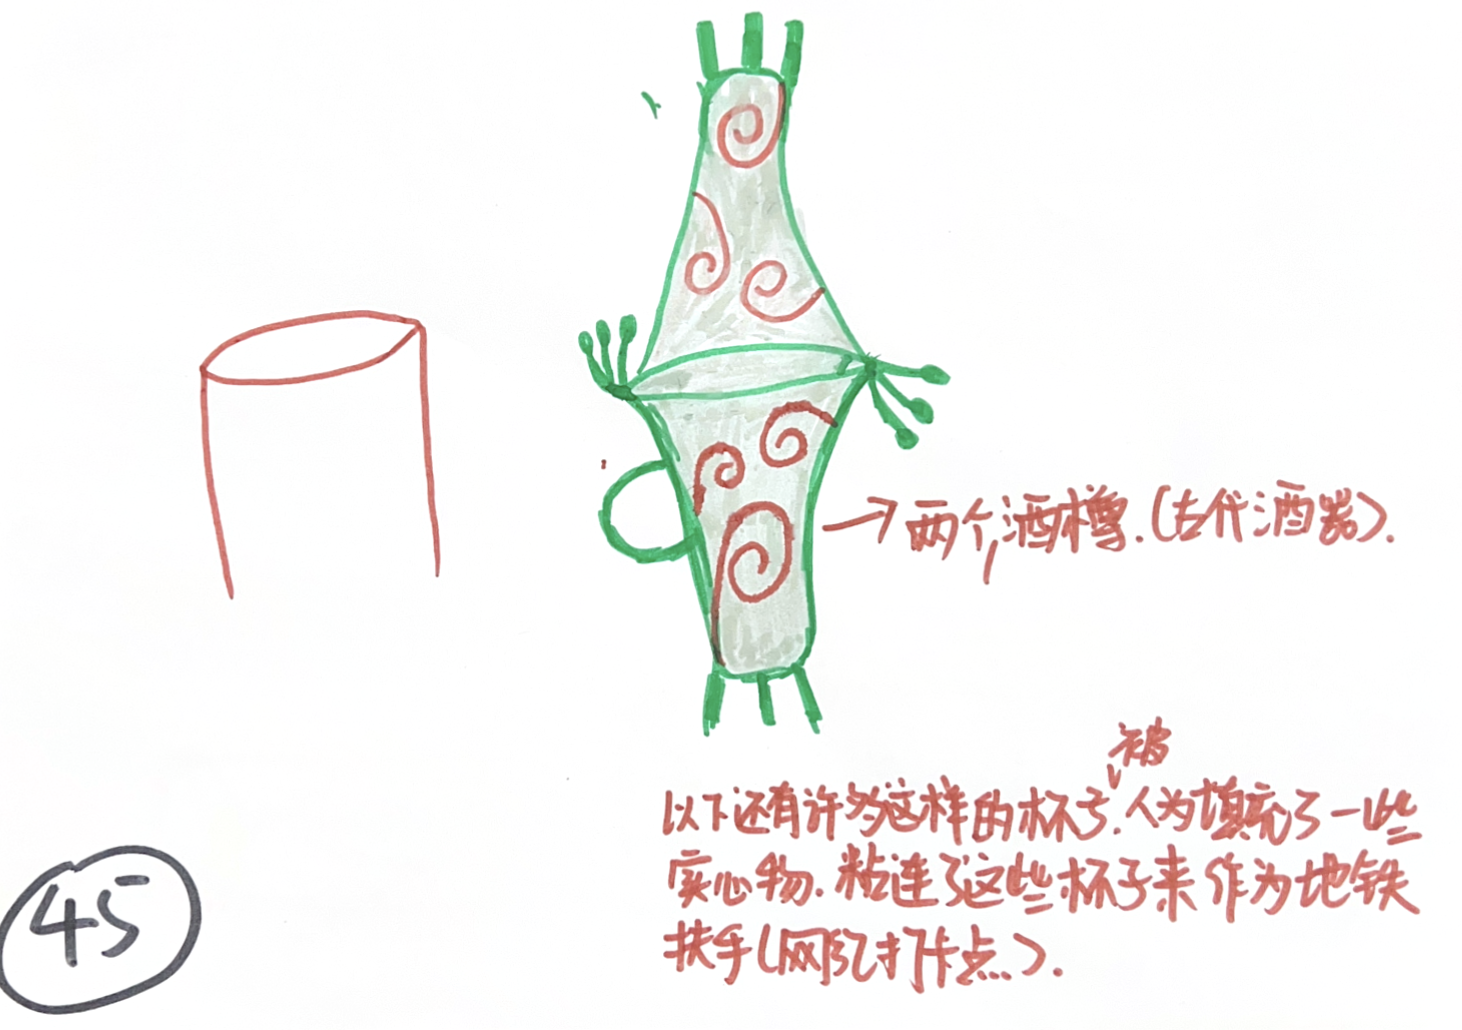 两个酒樽.(古代酒器).
被
以下还有许多这样的杯子.人为填充了一些
实心物.粘连了这些杯子来作为地铁
扶手(网红打卡点).
45